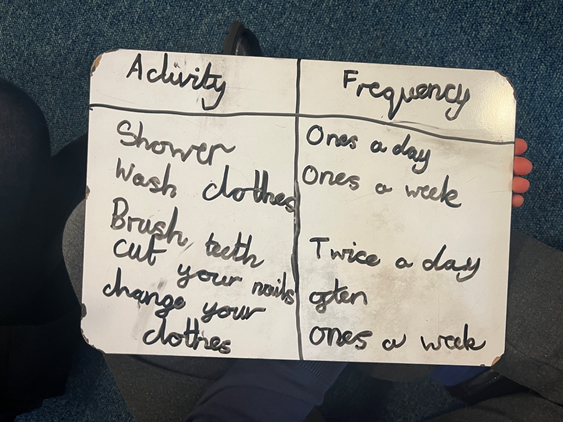 Activity Frequency
Shower Ones a day
Wash clothes Ones a week
Brush teeth Twice a day
cut your nails often
change your
clothes ones a week